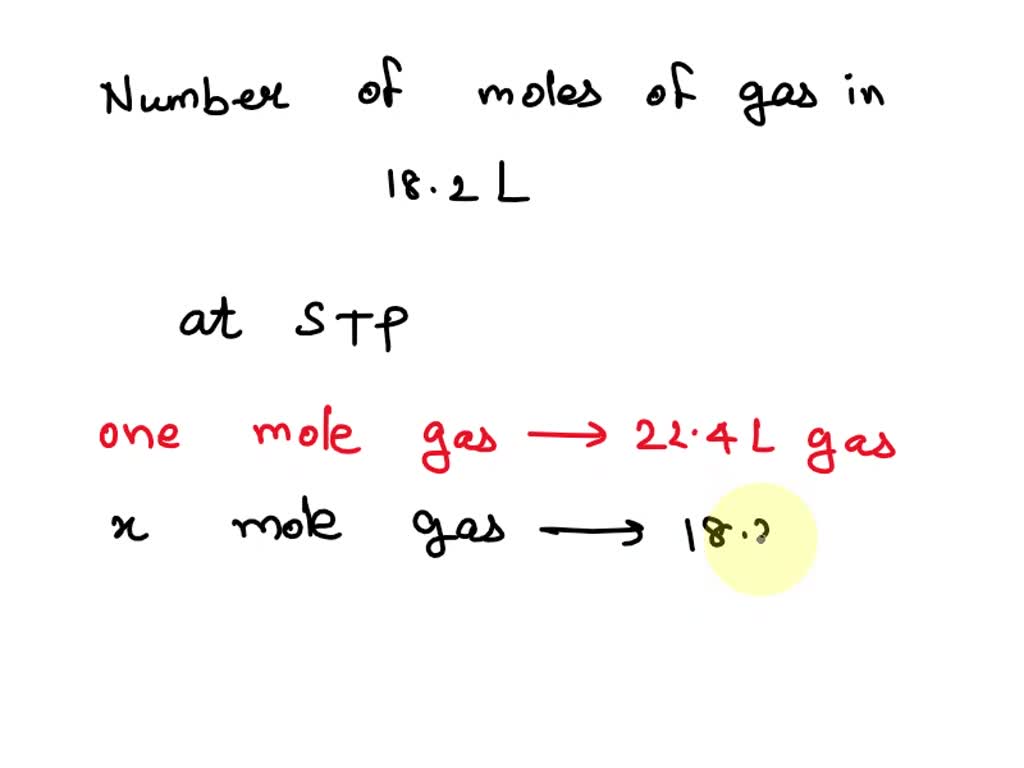 Number of moles of gas in
18.2 L
at STP
one mole gas → 22.4 L gas
x mole gas → 18.2